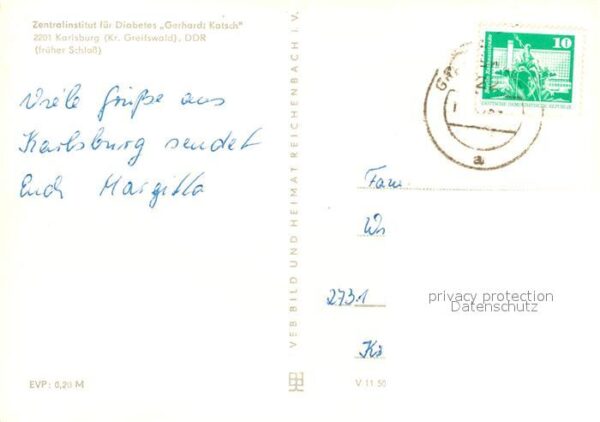 Zentralinstitut für Diabetes „Gerhardt Katsch"
2201 Karlsburg (Kr. Greifswald), DDR
(früher Schloß)
Viele Grüße aus
Karlsburg sendet
Euch Margitta
EVP: 0,20 M
VEB BILD UND HEIMAT REICHENBACH I. V.
V 11 50
10
DEUTSCHE DEMOKRATISCHE REPUBLIK
a
Fam
2731
privacy protection
Datenschutz